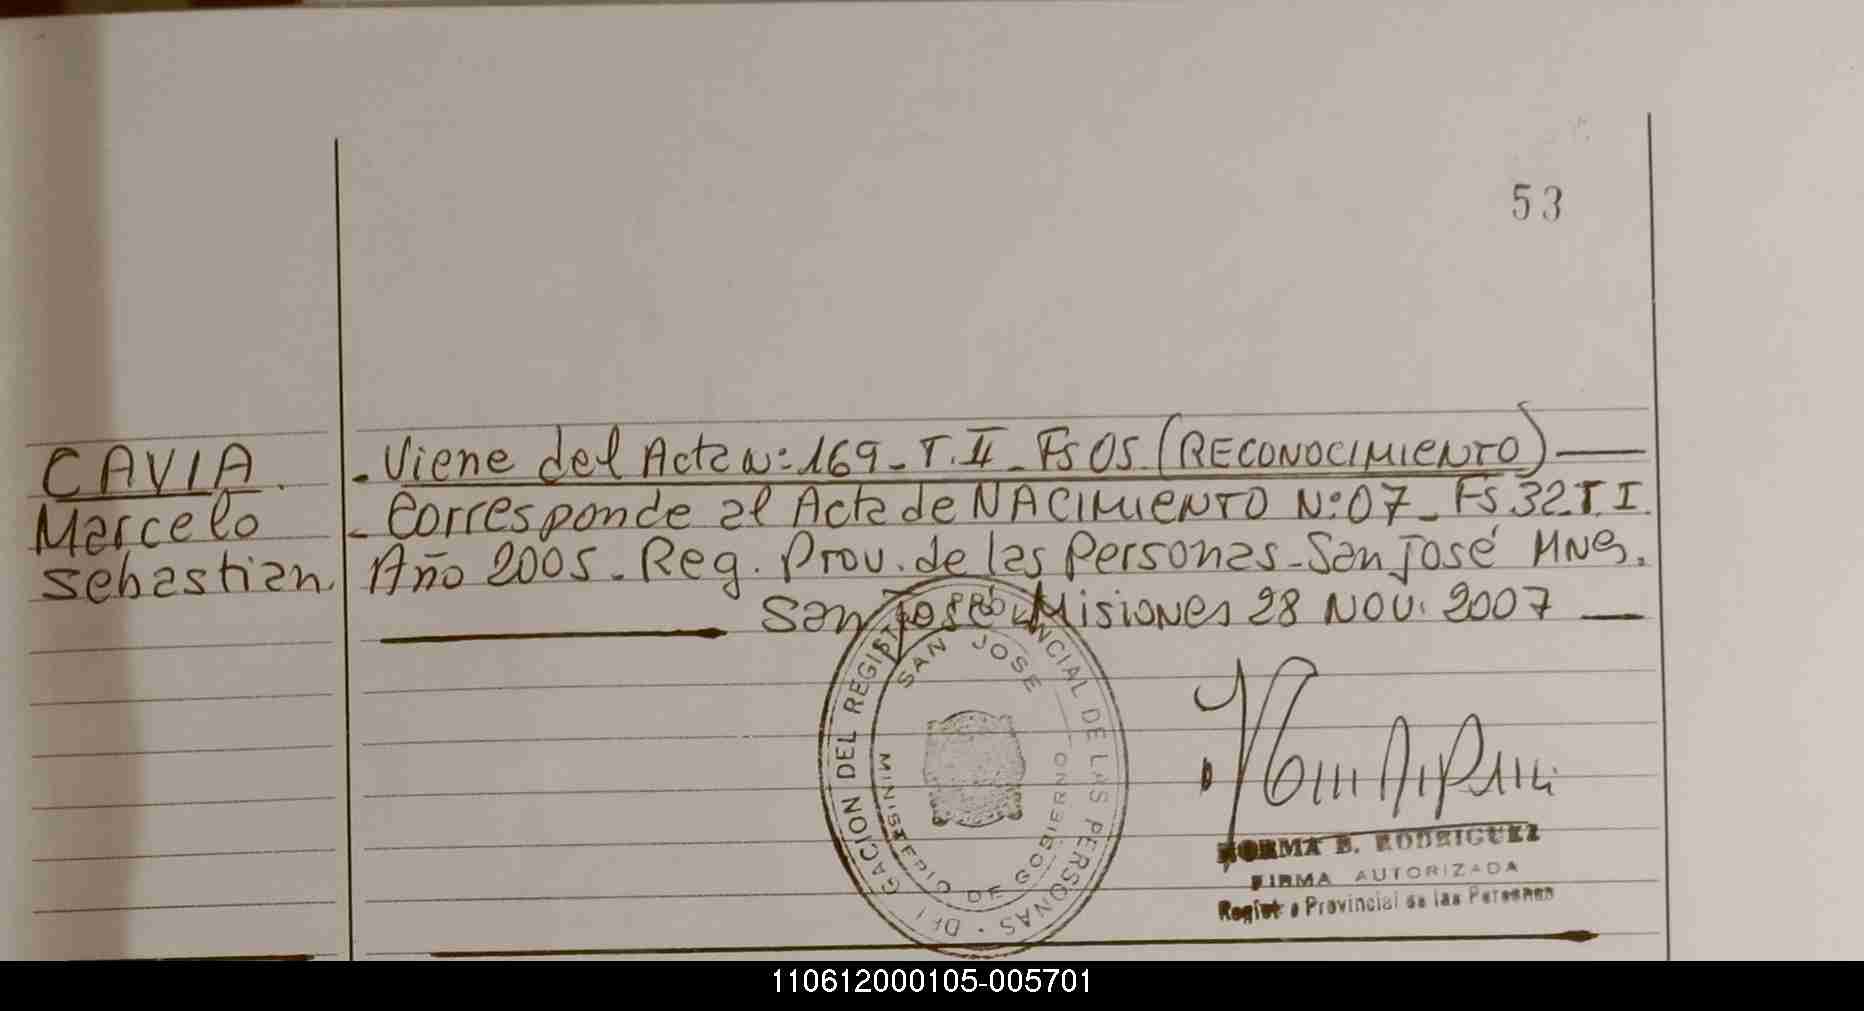 53
CAVIA. - Viene del Acta Nº 169 - T. II - Fs 05 (RECONOCIMIENTO) —
Marcelo - Corresponde al Acta de NACIMIENTO Nº: 07 - Fs. 32 T. I.
Sebastian. Año 2005 - Reg. Prov. de las Personas - San José Mnes.
San José Misiones 28 NOV. 2007 —
DELEGACION DEL REGISTRO PROVINCIAL DE LAS PERSONAS
SAN JOSE
MINISTERIO DE GOBIERNO
NORMA B. RODRIGUEZ
FIRMA AUTORIZADA
Registro Provincial de las Personas
110612000105-005701